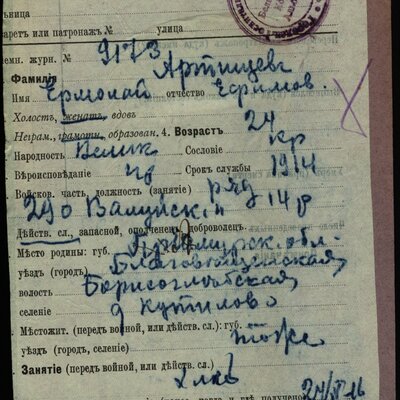 ьница
зарет или патронаж № улица
емн. журн. № 9173
Фамилія Артищевъ
Имя Ермолай отчество Ефимов
Холость, женать, вдовъ
Неграм., грамотн, образован. 4. Возрастъ 24
Народность Велик Сословіе кр
Вѣроисповѣданіе Срокъ службы 1914
Войсков. часть, должность (занятіе) ряд
290 Валуйск. п 14 р
Дѣйств. сл., запасной, ополченец, доброволецъ
Мѣсто родины: губ. Амурск. обл
уѣздъ (городъ) Благовѣщенская
волость Борисоглѣбская
селеніе
Мѣстожит. (передъ войной, или дѣйств. сл.): губ.
уѣздъ (городъ, селеніе) тоже
Занятіе (передъ войной, или дѣйств. сл.)